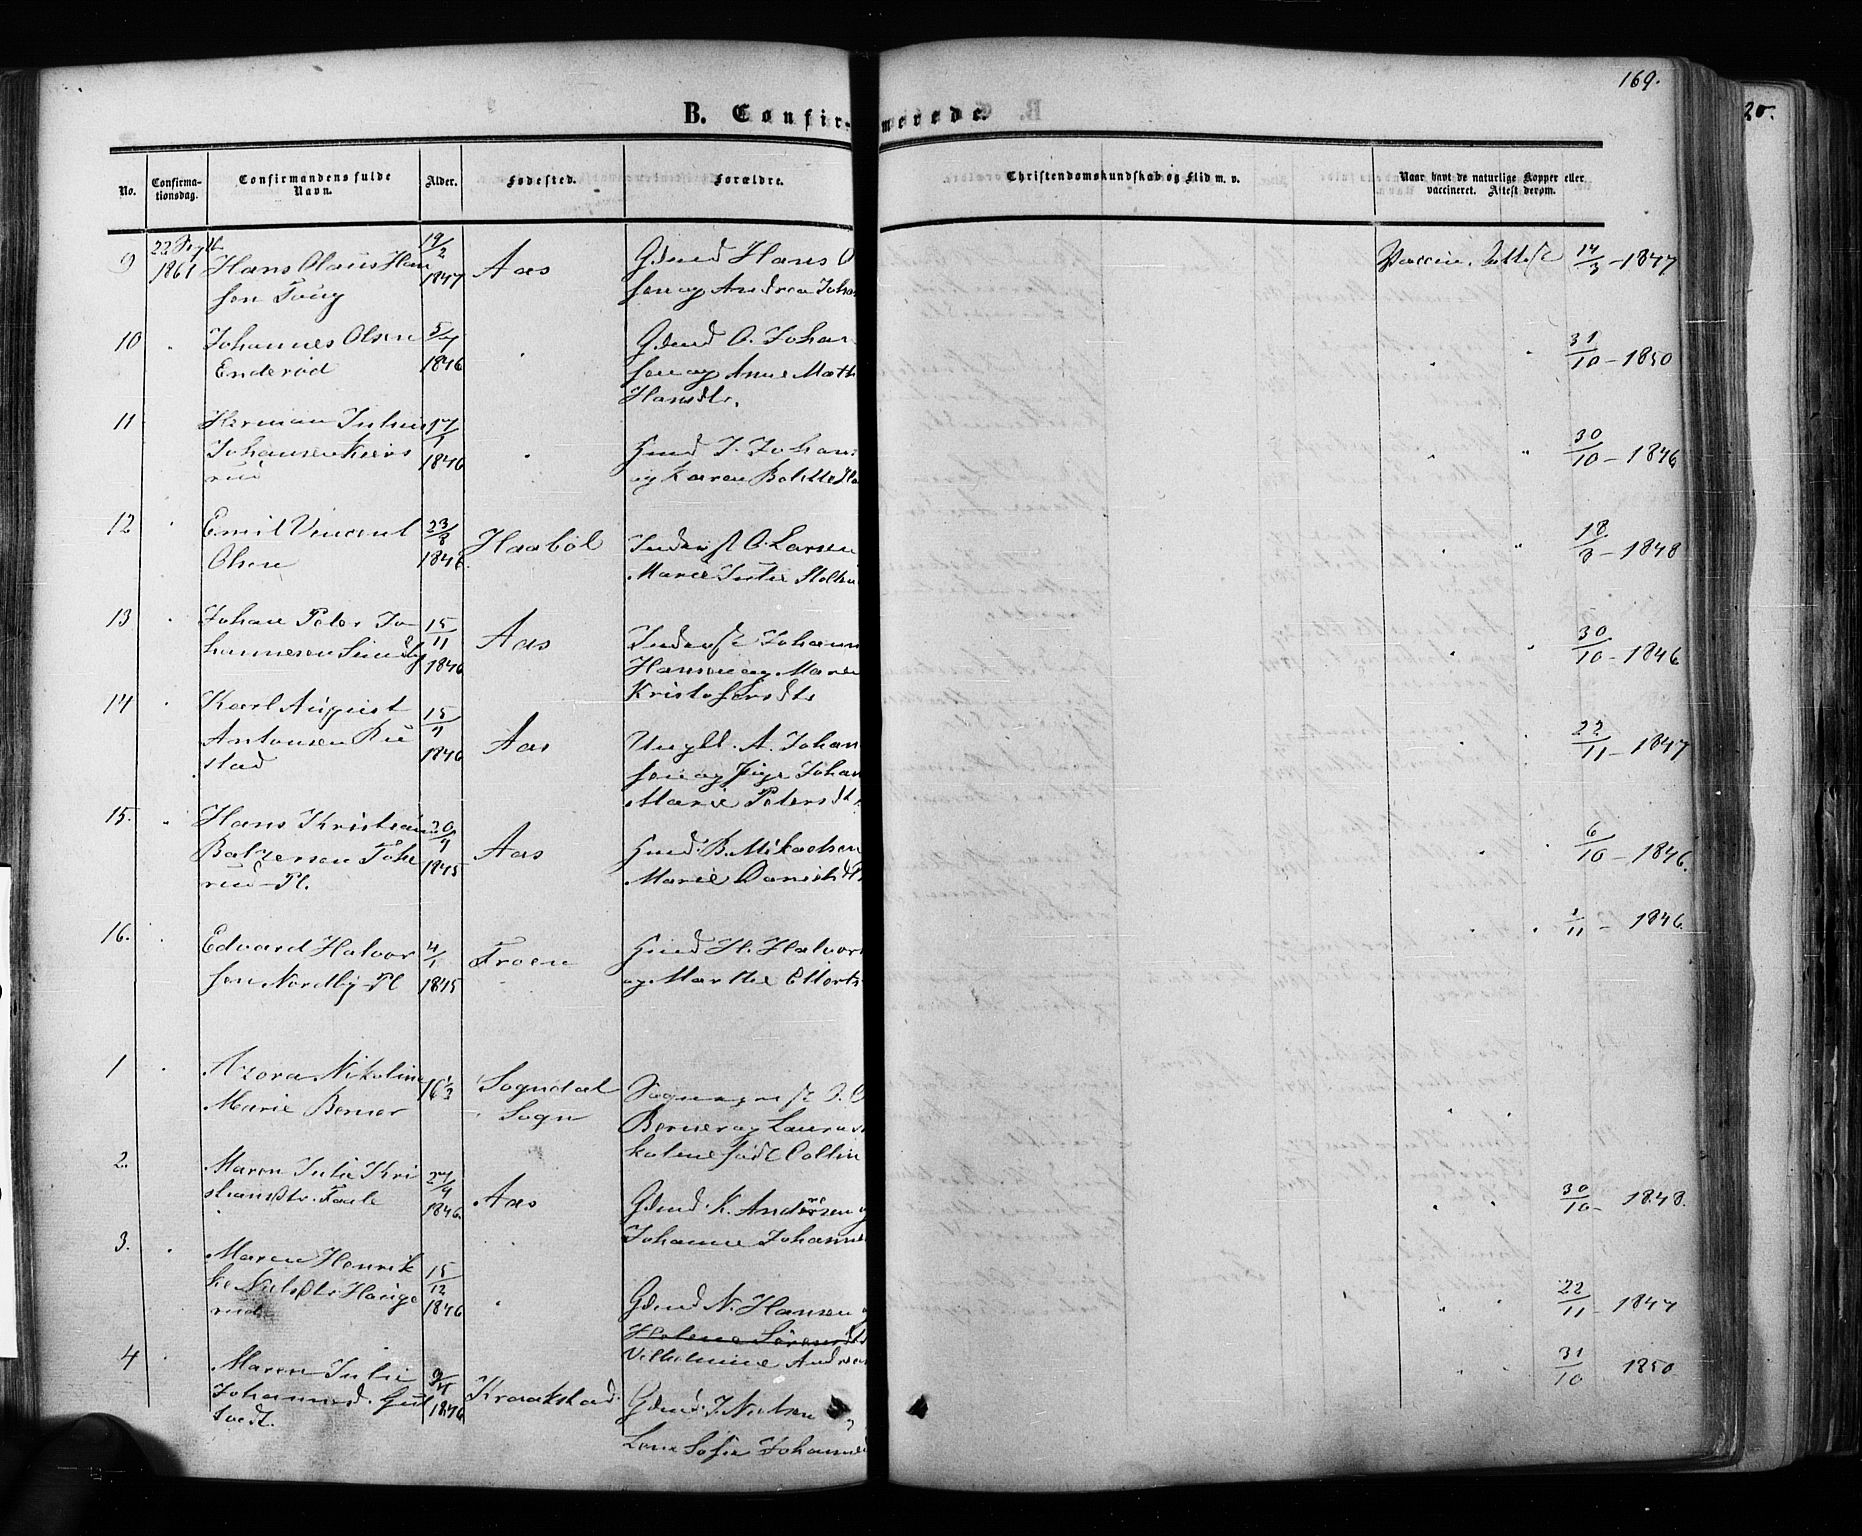 169.
20.
B. Confir-
merede.
No.
Confirma-
tionsdag.
Confirmandens fulde
Navn.
Alder.
Fødested.
Forældre.
Christendomskundskab og Flid m. v.
Naar havt de naturlige Kopper eller
vaccineret. Attest derom.
9
22 Septb
1861
Hans Olaus Han
sen
19/2
1847
Aas
Gdmd Hans O
sen og Andrea Joha
Vaccin. Attest 14/3 - 1847
10
Johannes Olsen
Enderød
5/7
1846
Gdmd O. Johan
sen og Anne Math
Hansdtr.
" " 31/10 - 1850
11
Herman Julius
Johansen Kjers
rud
17/1
1846
Hmd J. Johans
og Karen Bolette Ha
" " 30/10 - 1846
12
Emil Vincent
Olsen
23/8
1846
Haabøl
Inderst O. Larsen
Marie Julie
" " 18/8 - 1848
13
Johan Peter Jo
hannesen
15/11
1846
Aas
Inderst Johann
Hansen og Maren
Kristofersdtr
" " 30/10 - 1846
14
Karl August
Antonsen Ru
stad
15/7
1846
Aas
Ungkl. A. Johan
sen og Pige Johan
Marie Petersdtr
" " 22/11 - 1847
15.
Hans Kristian
Baltzersen
rud Pl.
20/7
1845
Aas
Hmd. B. Mikaelsen
Marie Danielsdtr
" " 6/10 - 1846.
16.
Edvard Halvor
sen Nordby Pl
4/1
1845
Froen
Hmd H. Halvors
og Marthe
" " 1/11 - 1846.
1
Azora Nikoline
Marie Berner
16 1/3
Sogndal
Sogn
Sogneprest
Berner og Laura
koline født Collin
2.
Maren Julie Kri
stiansdtr.
27/9
1846.
Aas
Gdmd. K. Andersen
Johanne Johanne
" " 30/10 - 1848.
3.
Maren Henrik
ke Nielsdtr Hauge
rud
15/12
1846
Gdmd N. Hansen
Helene Sørensdt
Vilhelmine Andrea
" " 22/11 - 1847
4
Maren Julie
Johannesd.
9/4
1846
Kraakstad
Gdmd. J. Nielsen
Lene Sofie Johannesd
" " 31/10 1850